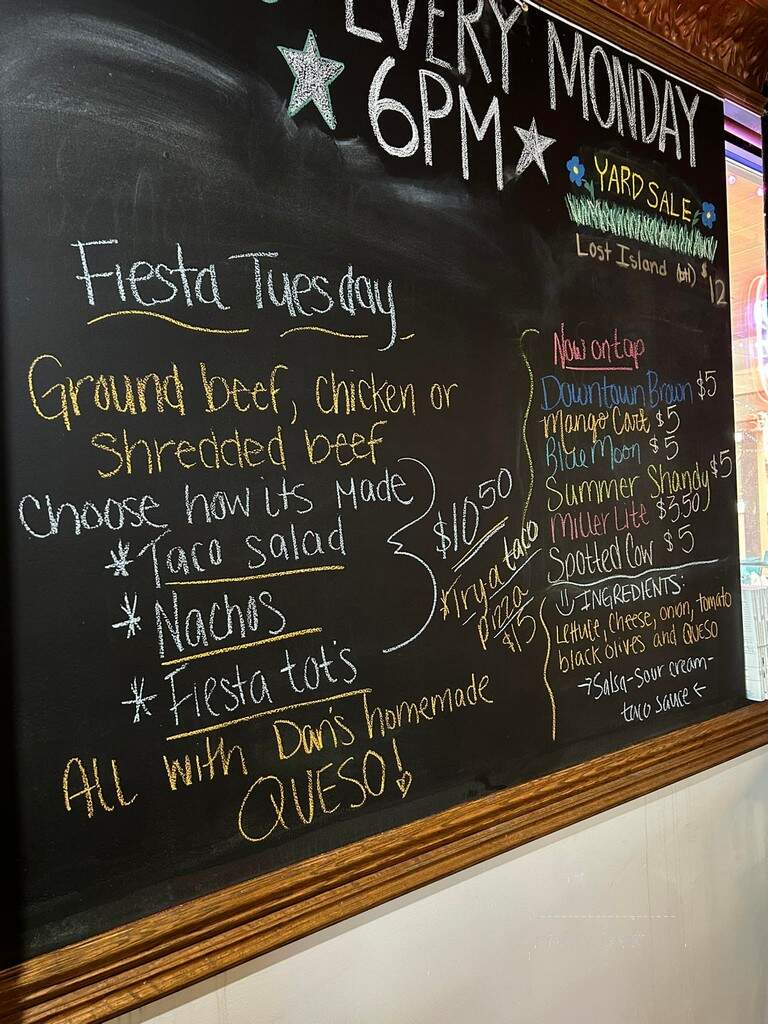 EVERY MONDAY
6PM
YARD SALE
Lost Island (btl) $12
Fiesta Tuesday
Ground beef, chicken or
shredded beef
Choose how its Made
* Taco salad
* Nachos
* Fiesta tot's
$10.50
*Try a taco
pizza
$15
All with Dan's homemade
QUESO!
Now on tap
Downtown Brown $5
Mango Cart $5
Blue Moon $5
Summer Shandy $5
Miller Lite $3.50
Spotted Cow $5
INGREDIENTS:
Lettuce, cheese, onion, tomato
black olives and QUESO
→Salsa-sour cream-
taco sauce←